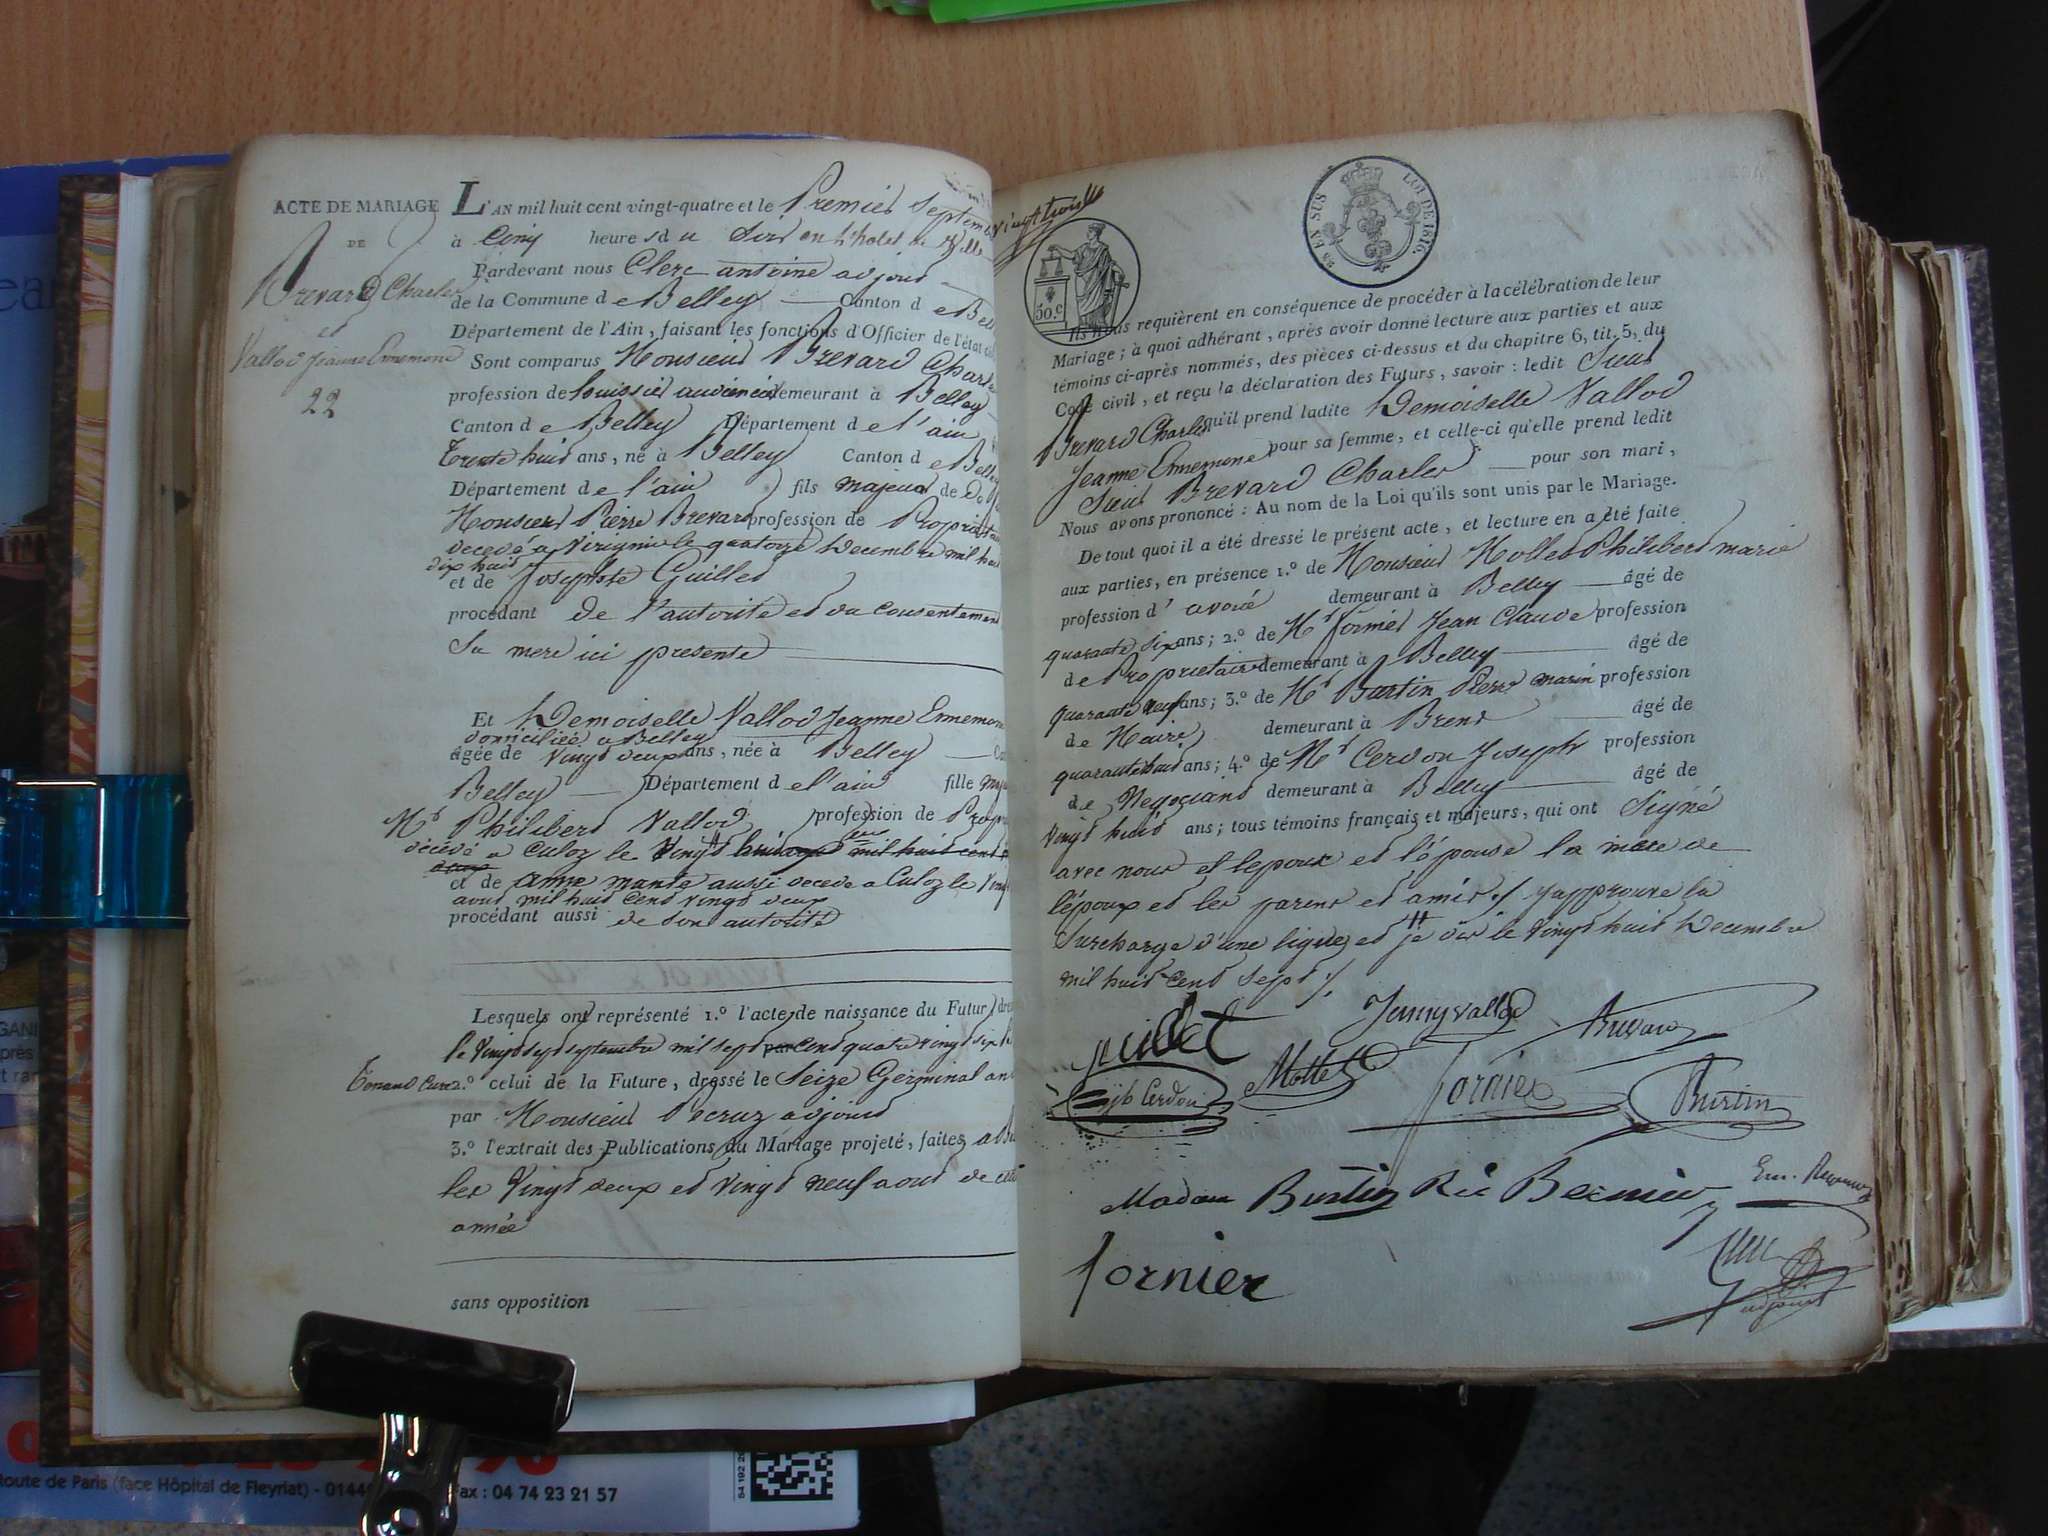 ACTE DE MARIAGE
DE
Brevard Charles
et
Vallod Jeanne Ennemone
22
L'AN mil huit cent vingt-quatre et le Premier Septem
à Cinq heures du Soir en l'hotel de Ville
Pardevant nous Clerc antoine adjoint
de la Commune de Belley Canton de Bel
Département de l'Ain, faisant les fonctions d'Officier de l'état ci
Sont comparus Monsieur Brevard Charle
profession de huissier audiencier demeurant à Belley
Canton de Belley Département de l'ain
trente huit ans, né à Belley Canton de Belley
Département de l'ain fils majeur de
Monsieur Pierre Brevard profession de Propriétai
decedé a Virignin le quatorze Decembre mil huit
dix huit
et de Josephte Guillet
procédant de l'autorité et du consentement
Sa mere ici presente
Et Demoiselle Vallod Jeanne Ennemone
domiciliée a Belley
âgée de vingt deux ans, née à Belley
Belley Département de l'ain fille maj
Mr Philibert Vallod profession de Prop
décédé a Culoz le Vingt mil huit cent
et de anne mante aussi decedé a Culoz le Vingt
aout mil huit Cent vingt deux
procédant aussi de son autorité
Lesquels ont représenté 1.º l'acte de naissance du Futur, dre
le Vingt sept septembre mil sept par Cent quatre vingt six
Tenand Cure 2.º celui de la Future, dressé le Seize Germinal an
par Monsieur Decruz adjoint
3.º l'extrait des Publications du Mariage projeté, faites a B
les Vingt deux et vingt neuf aout de cette
année
sans opposition
vingt troisse
50.c
EN SUS
LOI DE 1816.
Ils nous requièrent en conséquence de procéder à la célébration de leur
Mariage; à quoi adhérant, après avoir donné lecture aux parties et aux
témoins ci-après nommés, des pièces ci-dessus et du chapitre 6, tit. 5, du
Code civil, et reçu la déclaration des Futurs, savoir: ledit Sieur
Brevard Charles qu'il prend ladite Demoiselle Vallod
Jeanne Ennemone pour sa femme, et celle-ci qu'elle prend ledit
Sieur Brevard Charles pour son mari,
Nous avons prononcé: Au nom de la Loi qu'ils sont unis par le Mariage.
De tout quoi il a été dressé le présent acte, et lecture en a été faite
aux parties, en présence 1.º de Monsieur Mollet Philibert marie
profession d' avoué demeurant à Belley âgé de
quarante six ans; 2.º de Mr fornier Jean Claude profession
de Proprietaire demeurant à Belley âgé de
quarante neuf ans; 3.º de Mr Burtin Pierre marin profession
de Maire demeurant à Brens âgé de
quarante huit ans; 4.º de Mr Cerdon Joseph profession
de Negociant demeurant à Belley âgé de
vingt huit ans; tous témoins français et majeurs, qui ont Signé
avec nous et l'epoux et l'épouse la mere de
l'époux et les parens et amis ./ J'approuve la
Surcharge d'une ligne et je dis le Vingt huit Decembre
mil huit cent sept ./.
Jenny Vallod
Brevard
Mollet
Jh Cerdon
fornier
Burtin
Madame Burtin Née Bernier
fornier
adjoint
Route de Paris (face Hôpital de Fleyriat) - 0144
Fax : 04 74 23 21 57